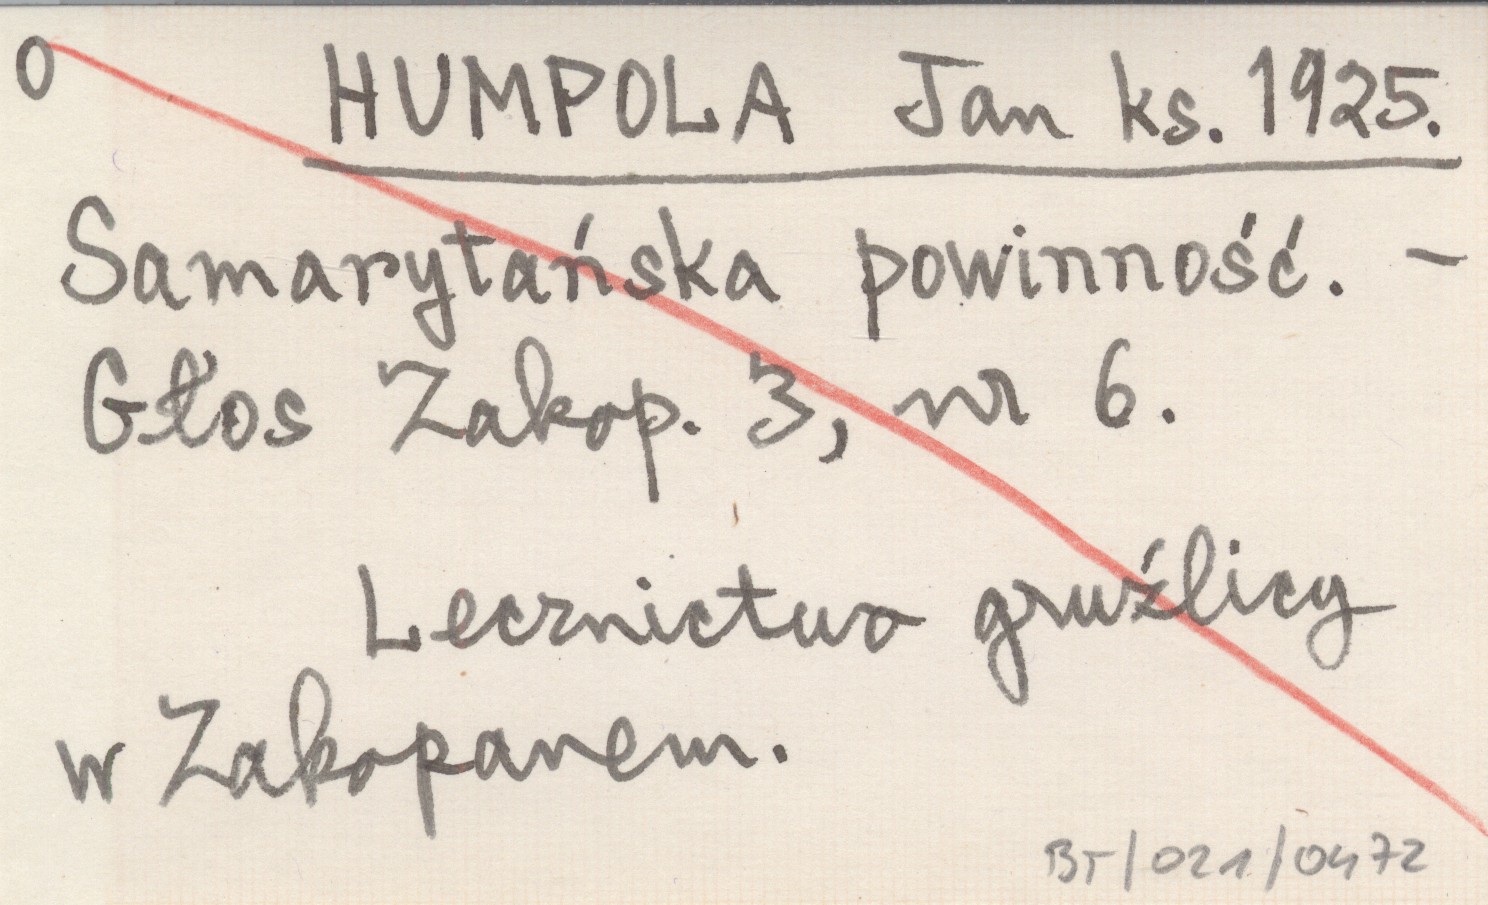 0 HUMPOLA Jan ks. 1925.
Samarytańska powinność. -
Głos Zakop. 3, nr 6.
Lecznictwo gruźlicy
w Zakopanem.
BT/021/0472